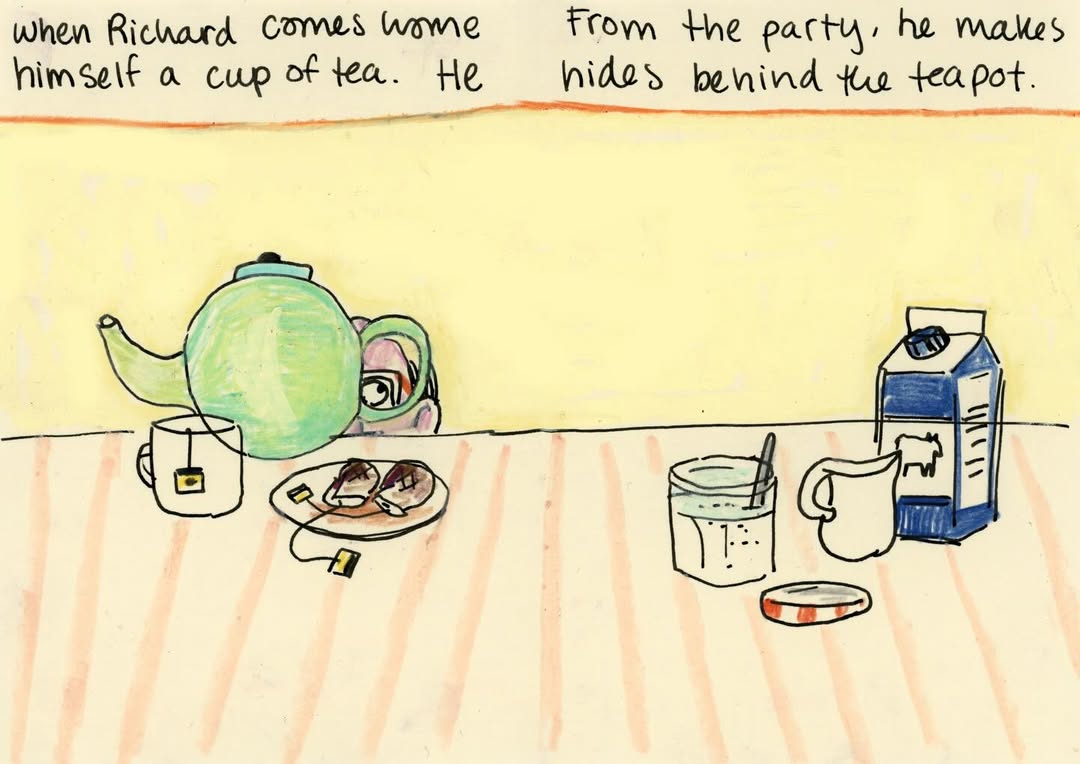 when Richard comes home From the party, he makes
himself a cup of tea. He hides behind the teapot.